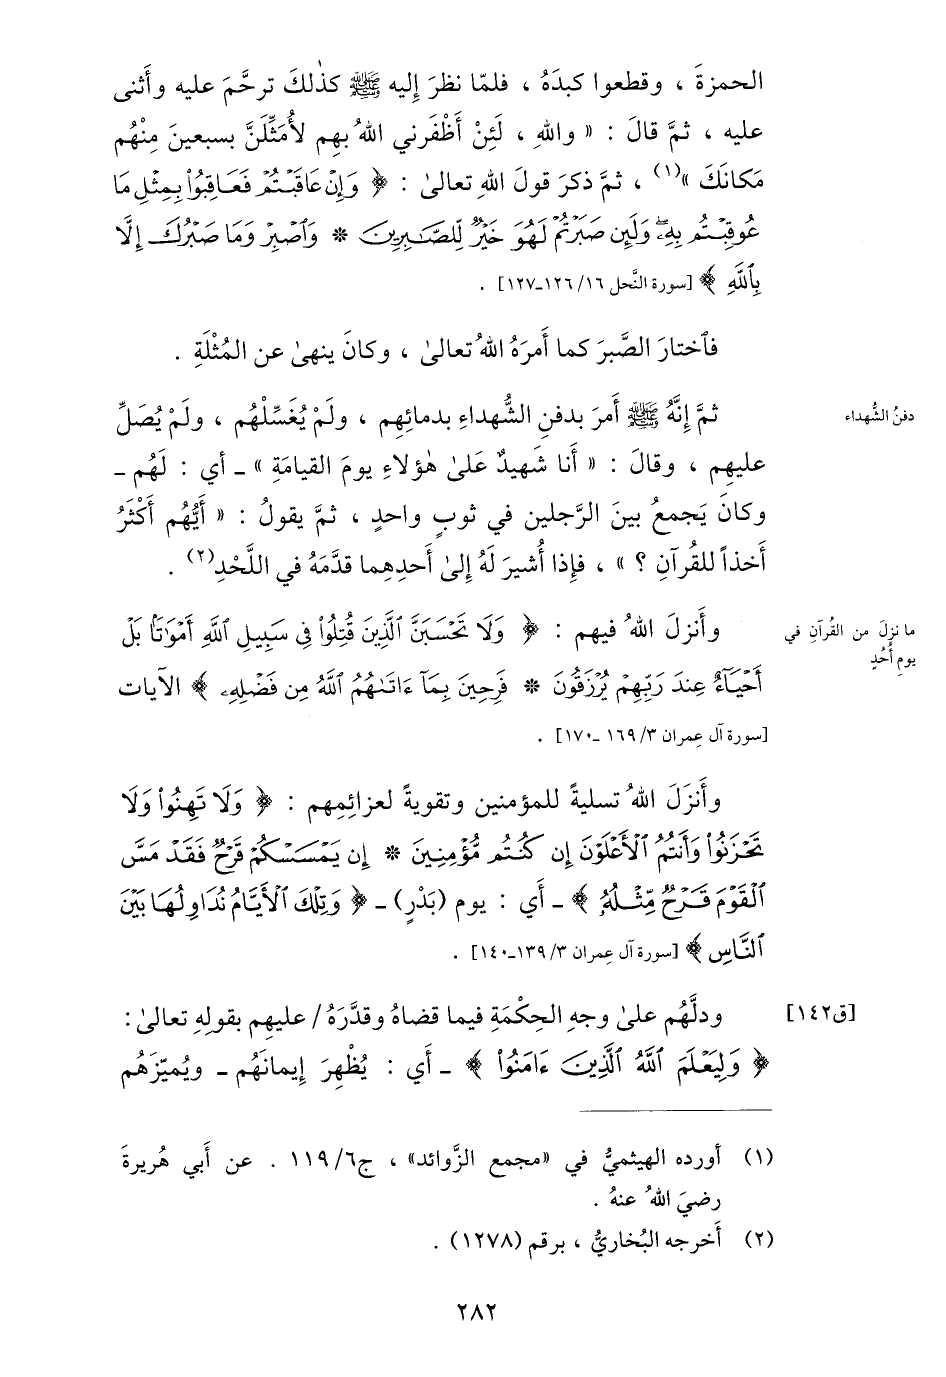 الحمزةَ ، وقطعوا كبدَهُ ، فلمّا نظرَ إليه ﷺ كذٰلكَ ترحَّمَ عليه وأَثنى
عليه ، ثمَّ قالَ : « واللهِ ، لَئِنْ أَظْفَرني اللهُ بهِم لأُمَثِّلَنَّ بسبعينَ مِنْهُم
مَكانَكَ »(١) ، ثمَّ ذكرَ قولَ اللهِ تعالىٰ : ﴿ وَإِنْ عَاقَبْتُمْ فَعَاقِبُوا۟ بِمِثْلِ مَا
عُوقِبْتُم بِهِۦ وَلَئِن صَبَرْتُمْ لَهُوَ خَيْرٌ لِّلصَّـٰبِرِينَ * وَٱصْبِرْ وَمَا صَبْرُكَ إِلَّا
بِٱللَّهِ ﴾ [سورة النَّحل ١٦/ ١٢٦-١٢٧] .
فٱختارَ الصَّبرَ كما أَمرَهُ اللهُ تعالىٰ ، وكانَ ينهىٰ عن المُثْلَةِ .
دفنُ الشُّهداء
ثمَّ إِنَّهُ ﷺ أَمرَ بدفنِ الشُّهداءِ بدمائِهِم ، ولَمْ يُغَسِّلْهُم ، ولَمْ يُصَلِّ
عليهِم ، وقالَ : « أَنا شَهيدٌ عَلىٰ هٰؤلاءِ يومَ القيامَةِ » ـ أي : لَهُم ـ
وكانَ يَجمعُ بينَ الرَّجلين في ثوبٍ واحدٍ ، ثمَّ يقولُ : « أَيُّهُم أَكْثَرُ
أَخذاً للقُرآنِ ؟ » ، فإِذا أُشيرَ لَهُ إِلىٰ أَحدِهِما قدَّمَهُ في اللَّحْدِ(٢) .
ما نزلَ من القُرآنِ في
يومِ أُحُدٍ
وأَنزلَ اللهُ فيهم : ﴿ وَلَا تَحْسَبَنَّ ٱلَّذِينَ قُتِلُوا۟ فِى سَبِيلِ ٱللَّهِ أَمْوَٰتًۢا بَلْ
أَحْيَآءٌ عِندَ رَبِّهِمْ يُرْزَقُونَ * فَرِحِينَ بِمَآ ءَاتَىٰهُمُ ٱللَّهُ مِن فَضْلِهِۦ ﴾ الآيات
[سورة آل عِمران ٣/ ١٦٩ ـ١٧٠] .
وأَنزَلَ اللهُ تسليةً للمؤمنين وتقويةً لعزائِمِهم : ﴿ وَلَا تَهِنُوا۟ وَلَا
تَحْزَنُوا۟ وَأَنتُمُ ٱلْأَعْلَوْنَ إِن كُنتُم مُّؤْمِنِينَ * إِن يَمْسَسْكُمْ قَرْحٌ فَقَدْ مَسَّ
ٱلْقَوْمَ قَرْحٌ مِّثْلُهُۥ ﴾ ـ أَي : يوم (بَدْرٍ) ـ ﴿ وَتِلْكَ ٱلْأَيَّامُ نُدَاوِلُهَا بَيْنَ
ٱلنَّاسِ ﴾ [سورة آل عِمران ٣/ ١٣٩ـ١٤٠] .
[ق١٤٢]
ودلَّهُم علىٰ وجهِ الحِكْمَةِ فيما قضاهُ وقدَّرَهُ / عليهِم بقولِهِ تعالىٰ :
﴿ وَلِيَعْلَمَ ٱللَّهُ ٱلَّذِينَ ءَامَنُوا۟ ﴾ ـ أَي : يُظْهِرَ إِيمانَهُم ـ ويُميّزَهُم
(١) أورده الهيثميُّ في «مجمع الزَّوائد» ، ج٦/ ١١٩ . عن أَبي هُريرةَ
رضيَ اللهُ عنهُ .
(٢) أَخرجه البُخاريُّ ، برقم (١٢٧٨) .
٢٨٢